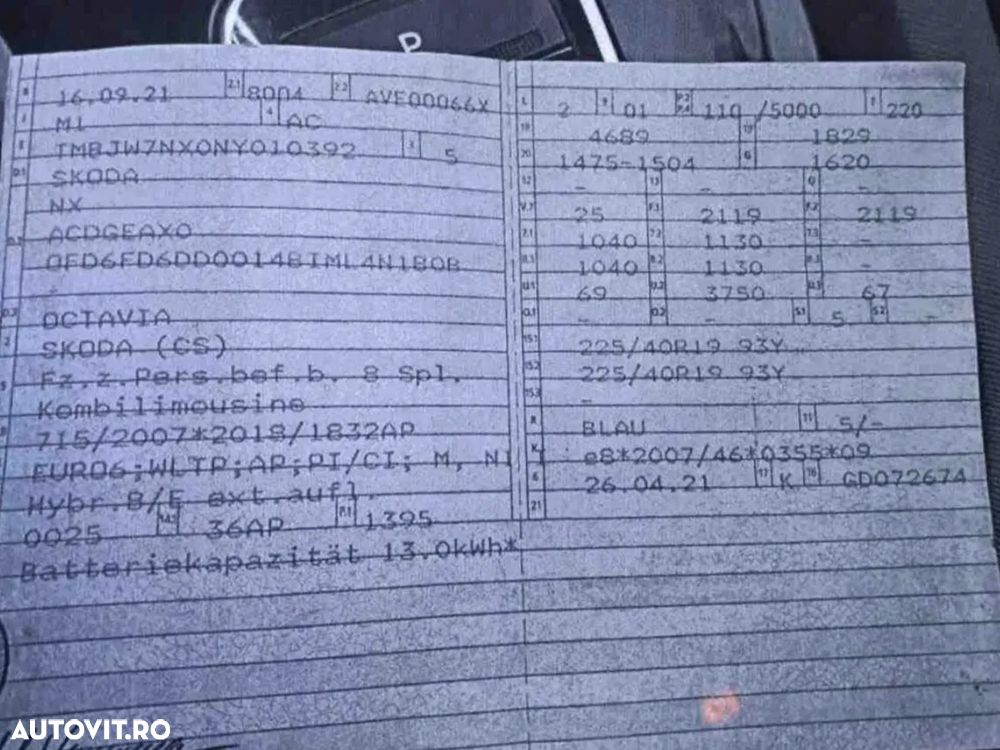 P
B 16.09.21 2.1 8004 2.2 AVE00066X
J M1 4 AC
E TMBJW7NX0NY010392 3 5
D.1 SKODA
NX
ACDGEAX0
D.2 0FD6FD6DD0014BIML4N1B0B
D.3 OCTAVIA
2 SKODA (CS)
5 Fz.z.Pers.bef.b. 8 Spl.
Kombilimousine
715/2007*2018/1832AP
EURO6;WLTP;AP;PI/CI; M, N1
Hybr.B/E ext.aufl.
0025 14.1 36AP P.1 1395
Batteriekapazität 13.0kWh*
L 2 9 01 P.2 P.4 110 /5000 T 220
18 4689 19 1829
20 1475-1504 G 1620
12 - 13 - Q -
V.7 25 F.1 2119 F.2 2119
7.1 1040 7.2 1130 7.3 -
8.1 1040 8.2 1130 8.3 -
U.1 69 U.2 3750 U.3 67
O.1 - O.2 - S.1 5 S.2 -
15.1 225/40R19 93Y
15.2 225/40R19 93Y
15.3 -
R BLAU 11 5/-
K e8*2007/46*0355*09
6 26.04.21 17 K 16 GD072674
21
AUTOVIT.RO